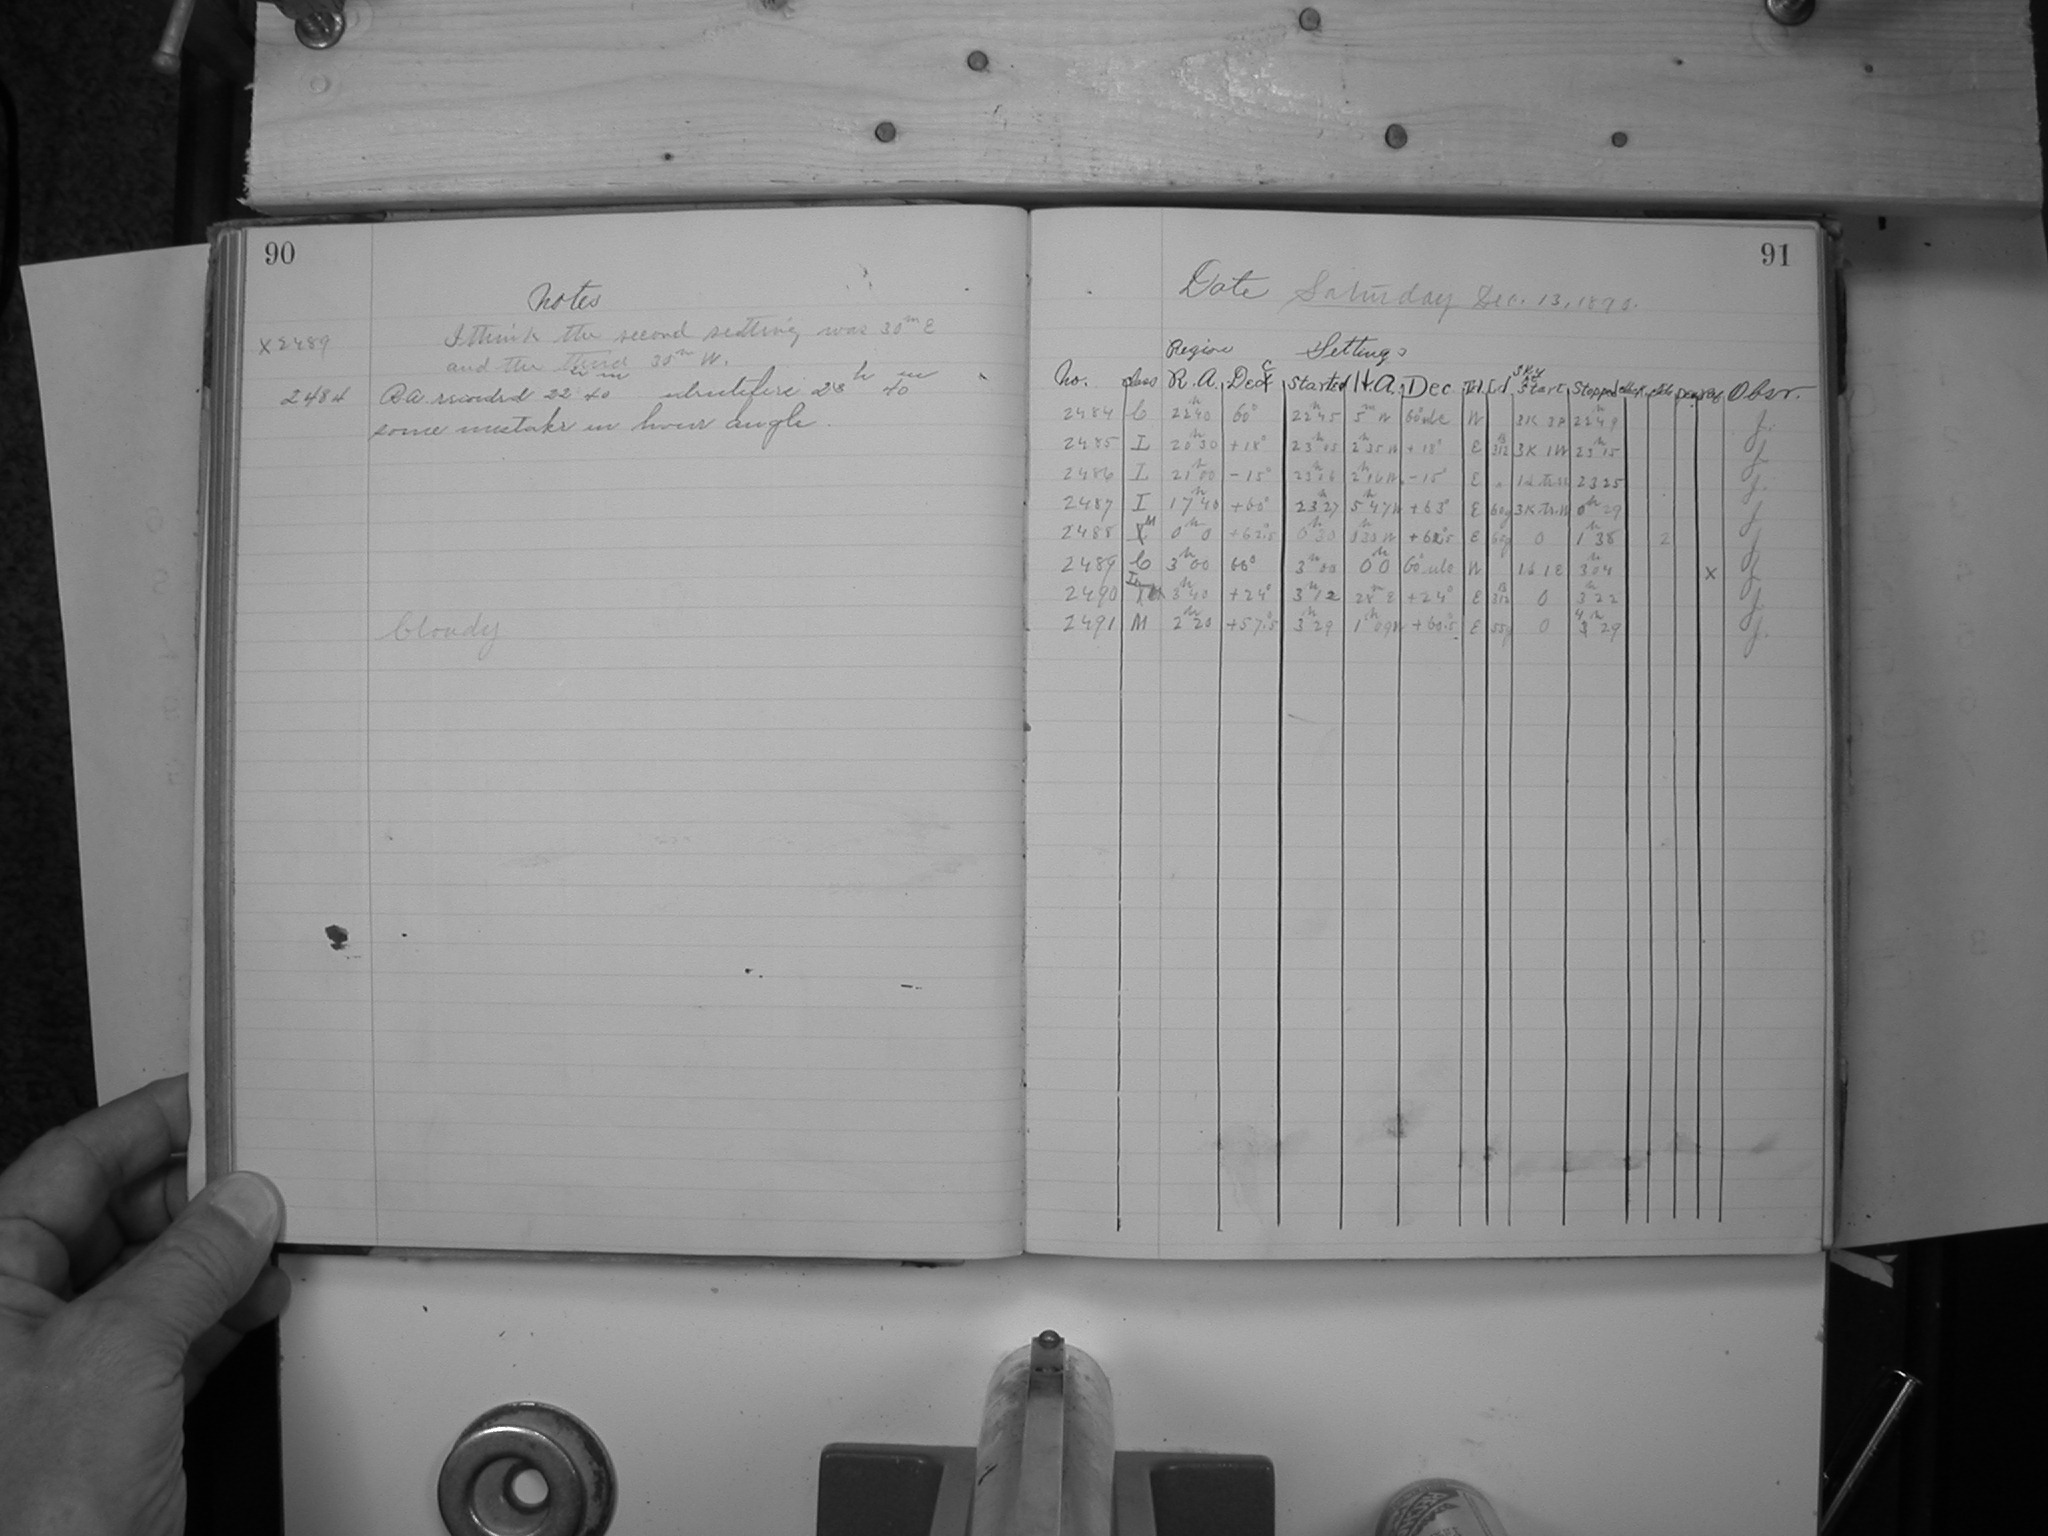 90
Notes
X 2489 I think the second setting was 30m E
and the third 30m W.
2484 RA recorded 22h 40m 23h 40m
some mistake in hour angle.
Cloudy
91
Date Saturday Dec. 13, 1890.
Region Settings
No. Class R.A. Decl Started H.A. Dec. Sky Start Stopped Obsr.
2484 C 22h40 60° 22h45 5m W 60° W 3K 22h49 J.
2485 I 20h30 +18° 23h05 2h35 W +18° E B 312 3K 1W 23h15 J.
2486 I 21h00 -15° 23h16 2h16 W -15° E " 23 25 J.
2487 I 17h40 +60° 23h27 5h47 W +63° E 60g 3K 0h29 J.
2488 M 0h 0 +62.5 0h30 0h30 W +62.5 E 0 1h38 2 J.
2489 C 3h00 60° 3h00 0h0 60° W 1d 1E 3h04 X J.
2490 3h40 +24° 3h12 28m E +24° E B 312 0 3h22 J.
2491 M 2h20 +57.5 3h29 1h09 W +60.5 E 55g 0 4h 29 J.